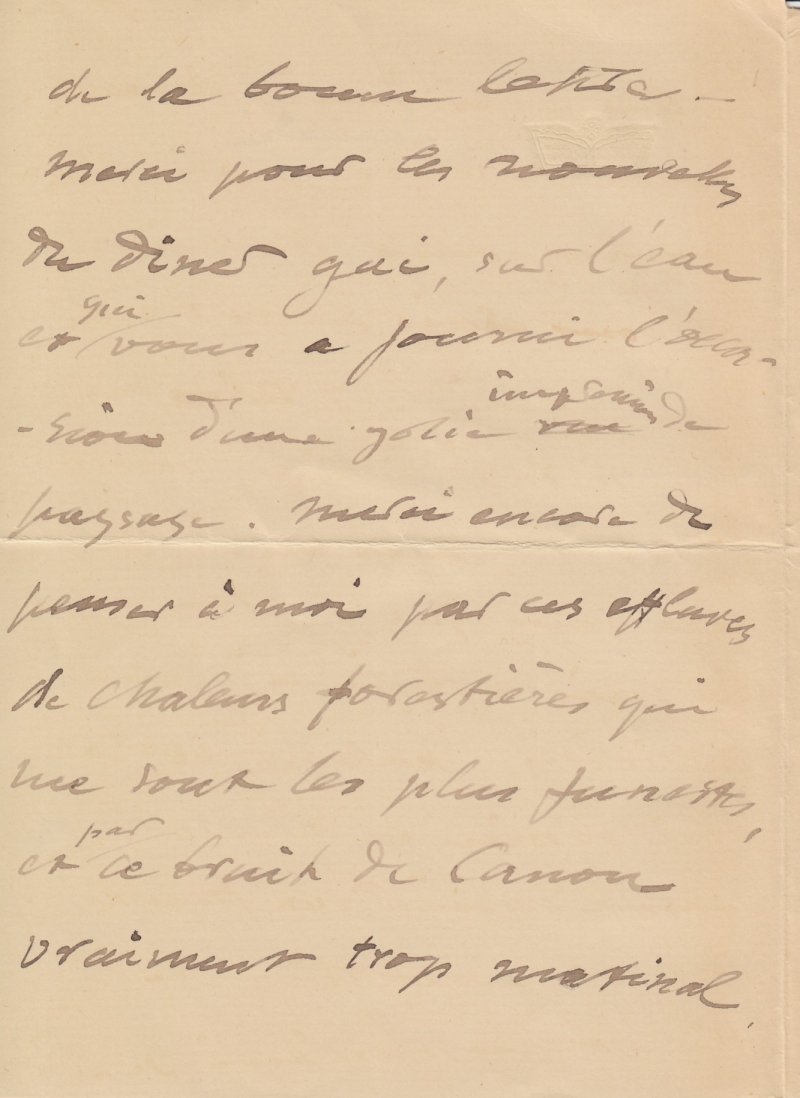 de la bonne lettre -
merci pour les nouvelles
du diner gai, sur l'eau
et qui vous a fourni l'occa-
-sion d'une jolie impression de
paysage. merci encore de
penser à moi par ces effluves
de chaleurs forestières qui
me sont les plus funestes,
et par ce bruit de Canon
vraiment trop matinal.